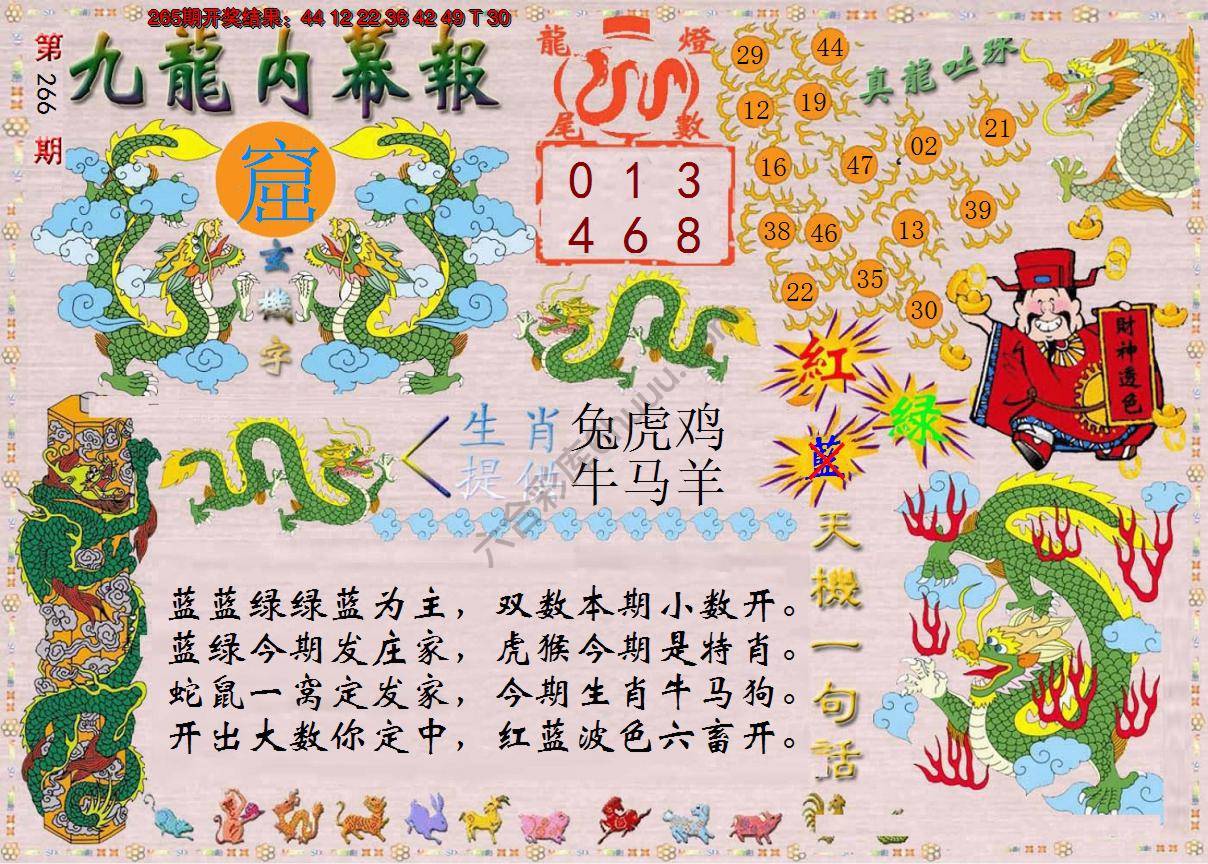 265期开奖结果：44 12 22 36 42 49 T 30
第266期
九龍內幕報
窟
玄機字
龍燈
尾數
0 1 3
4 6 8
真龍吐珠
29 44
12 19
16 47 02 21
38 46 13 39
22 35 30
財神透色
紅
綠
藍
生肖 兔虎鸡
提供 牛马羊
天機一句話
蓝蓝绿绿蓝为主，双数本期小数开。
蓝绿今期发庄家，虎猴今期是特肖。
蛇鼠一窝定发家，今期生肖牛马狗。
开出大数你定中，红蓝波色六畜开。